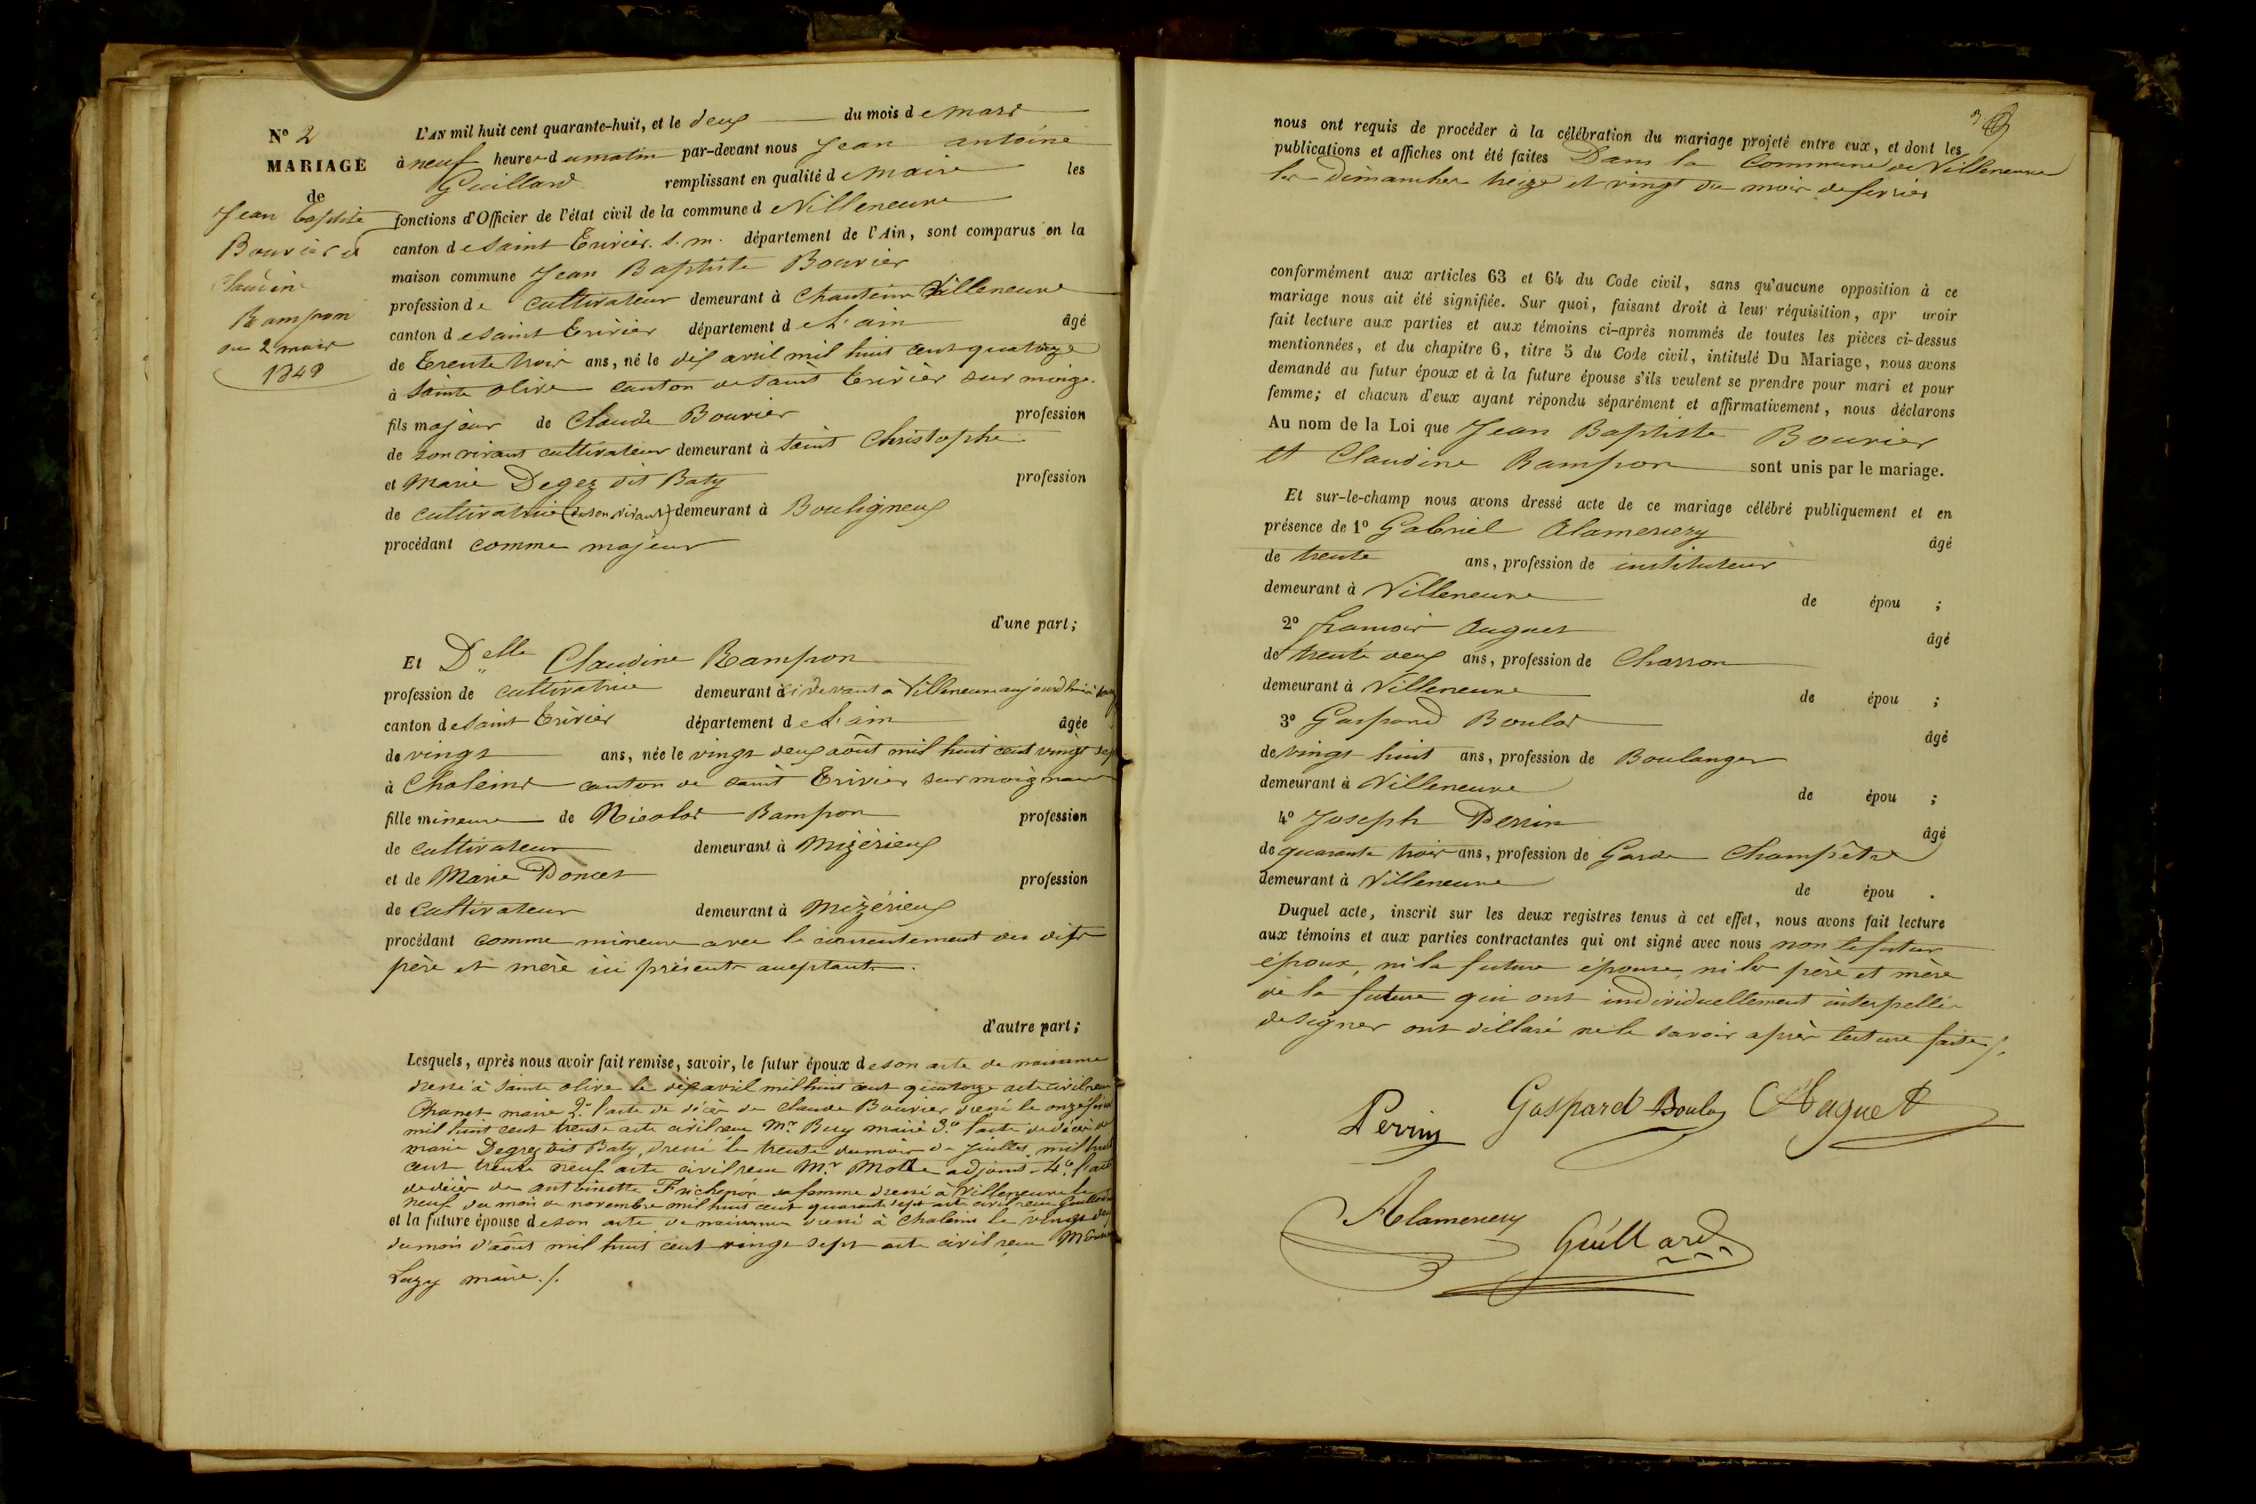 N° 2
MARIAGE
de
Jean Baptiste
Bouvier et
Claudine
Rampon
du 2 mars
1848
L'AN mil huit cent quarante-huit, et le deux du mois de mars
à neuf heures du matin par-devant nous Jean antoine
Guillard remplissant en qualité de Maire les
fonctions d'Officier de l'état civil de la commune de Villeneuve
canton de Saint Trivier s. m. département de l'Ain, sont comparus en la
maison commune Jean Baptiste Bouvier
profession de cultivateur demeurant à Chanteins Villeneuve
canton de Saint Trivier département de L'ain âgé
de Trente trois ans, né le dix avril mil huit cent quatorze
à Sainte olive canton de Saint Trivier sur
fils majeur de Claude Bouvier profession
de son vivant cultivateur demeurant à Saint Christophe
et Marie Degez dit Baty profession
de cultivatrice (de son vivant) demeurant à Bouligneux
procédant comme majeur
d'une part;
Et Delle Claudine Rampon
profession de cultivatrice demeurant à ci devant à Villeneuve aujourd'hui à
canton de Saint Trivier département de L'ain âgée
de vingt ans, née le vingt deux août mil huit cent vingt sept
à Chaleins canton de saint Trivier sur moignans
fille mineure de Nicolas Rampon profession
de cultivateur demeurant à Mizérieux
et de Marie Doncet profession
de cultivateur demeurant à Mizérieux
procédant comme mineure avec le consentement des dits
père et mère ici présents acceptants.
d'autre part;
Lesquels, après nous avoir fait remise, savoir, le futur époux de son acte de naissance
dressé à Sainte olive le dix avril mil huit cent quatorze acte civil reçu
Chanet maire 2° l'acte de décès de Claude Bouvier dressé le onze
mil huit cent trente acte civil reçu Mr Bury maire 3° l'acte de décès de
marie Degez dit Baty, dressé le trente du mois de Juillet mil huit
cent trente neuf acte civil reçu Mr Molle adjoint 4° l'acte
de décès de antoinette Frichepon sa femme dressé à Villeneuve le
neuf du mois de novembre mil huit cent quarante sept acte civil reçu Guillard
et la future épouse de son acte de naissance dressé à Chaleins le vingt deux
du mois d'août mil huit cent vingt sept acte civil reçu Mr
Luzy maire ./.
nous ont requis de procéder à la célébration du mariage projeté entre eux, et dont les
publications et affiches ont été faites Dans la Commune de Villeneuve
les dimanches treize et vingt du mois de fevrier
conformément aux articles 63 et 64 du Code civil, sans qu'aucune opposition à ce
mariage nous ait été signifiée. Sur quoi, faisant droit à leur réquisition, apr avoir
fait lecture aux parties et aux témoins ci-après nommés de toutes les pièces ci-dessus
mentionnées, et du chapitre 6, titre 5 du Code civil, intitulé Du Mariage, nous avons
demandé au futur époux et à la future épouse s'ils veulent se prendre pour mari et pour
femme; et chacun d'eux ayant répondu séparément et affirmativement, nous déclarons
Au nom de la Loi que Jean Baptiste Bouvier
et Claudine Rampon sont unis par le mariage.
Et sur-le-champ nous avons dressé acte de ce mariage célébré publiquement et en
présence de 1° Gabriel Alamercery âgé
de trente ans, profession de instituteur
demeurant à Villeneuve de épou ;
2° francois auguet âgé
de trente deux ans, profession de Charron
demeurant à Villeneuve de épou ;
3° Gaspard Boulas âgé
de vingt huit ans, profession de Boulanger
demeurant à Villeneuve de épou ;
4° Joseph Perrin âgé
de quarante trois ans, profession de Garde Champêtre
demeurant à Villeneuve de épou .
Duquel acte, inscrit sur les deux registres tenus à cet effet, nous avons fait lecture
aux témoins et aux parties contractantes qui ont signé avec nous non le futur
époux, ni la future épouse, ni les père et mère
de la future qui ont individuellement interpellés
de signer ont déllaré ne le savoir après lecture faite ./.
Perrin Gaspard Boulas Haguet
Alamercery
Guillard